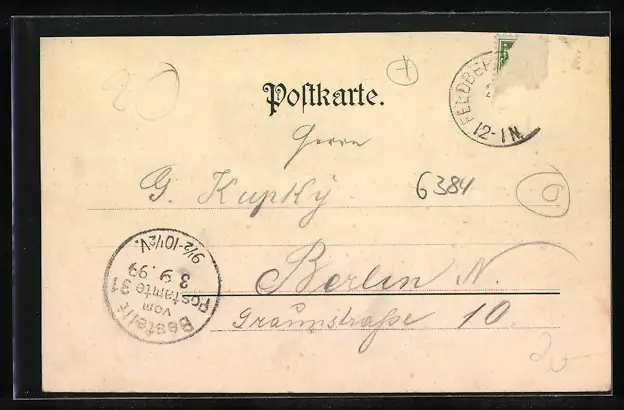 Postkarte.
FELDBE
12-1 N.
Herrn
G. Kupky
6384
6
Berlin N.
straße 10.
Bestellt
vom
Postamte 31
3.9.99
9½-10½V.
20